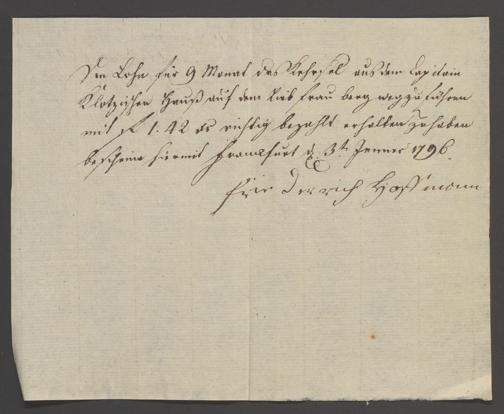 Den Lohn für 9 Monat das Kehrsel aus dem Capitain
Klotzischen Hauß auf dem Lieb frau berg wegzuführen
mit f 1.42 xr richtig bezahlt erhalten zu haben
bescheine hiermit Franckfurt d. 3t Jenner 1796.
Frie derrich Hoffmann